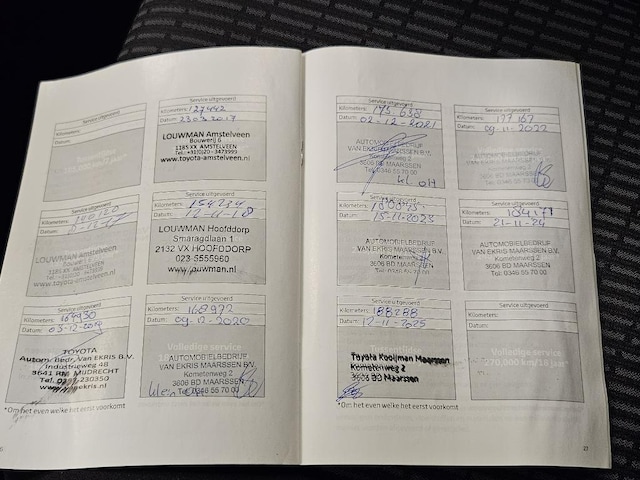 Service uitgevoerd
Kilometers:
Datum:
Service uitgevoerd
Kilometers: 127442
Datum: 23 03 2017
LOUWMAN Amstelveen
Bouwerij 6
1185 XX AMSTELVEEN
Tel.: +31(0)20 - 3473999
www.toyota-amstelveen.nl
Service uitgevoerd
Kilometers:
Datum:
LOUWMAN Amstelveen
Bouwerij 6
1185 XX AMSTELVEEN
www.toyota-amstelveen.nl
Service uitgevoerd
Kilometers: 154234
Datum: 12-11-18
LOUWMAN Hoofddorp
Smaragdlaan 1
2132 VX HOOFDDORP
023-5555960
www.louwman.nl
Service uitgevoerd
Kilometers: 164930
Datum: 03-12-2019
TOYOTA
Autom. Bedr. Van EKRIS B.V.
Industrieweg 48
3641 RM MIJDRECHT
Tel. 0297-230350
Service uitgevoerd
Kilometers: 168972
Datum: 09-12-2020
Volledige service
AUTOMOBIELBEDRIJF
VAN EKRIS MAARSSEN B.V.
Kometenweg 2
3606 BD MAARSSEN
Tel. 0346 55 70 00
Klein
*Om het even welke het eerst voorkomt
Service uitgevoerd
Kilometers: 175 638
Datum: 02-12-2021
AUTOMOBIELBEDRIJF
VAN EKRIS MAARSSEN B.V.
Kometenweg 2
3606 BD MAARSSEN
Tel. 0346 55 70 00
Kl OH
Service uitgevoerd
Kilometers: 177 167
Datum: 09-11-2022
AUTOMOBIELBEDRIJF
VAN EKRIS MAARSSEN B.V.
Kometenweg 2
3606 BD MAARSSEN
Tel. 0346 55 70 00
Service uitgevoerd
Kilometers:
Datum: 15-11-2023
AUTOMOBIELBEDRIJF
VAN EKRIS MAARSSEN B.V.
Kometenweg 2
3606 BD MAARSSEN
Tel. 0346 55 70 00
Service uitgevoerd
Kilometers:
Datum: 21-11-24
AUTOMOBIELBEDRIJF
VAN EKRIS MAARSSEN B.V.
Kometenweg 2
3606 BD MAARSSEN
Tel. 0346 55 70 00
Service uitgevoerd
Kilometers: 188288
Datum: 12-11-2025
Tussentijdse
Toyota Kooijman Maarssen
Kometenweg 2
3606 BD Maarssen
Service uitgevoerd
Kilometers:
Datum:
Volledige service
270.000 km/18 jaar*
*Om het even welke het eerst voorkomt